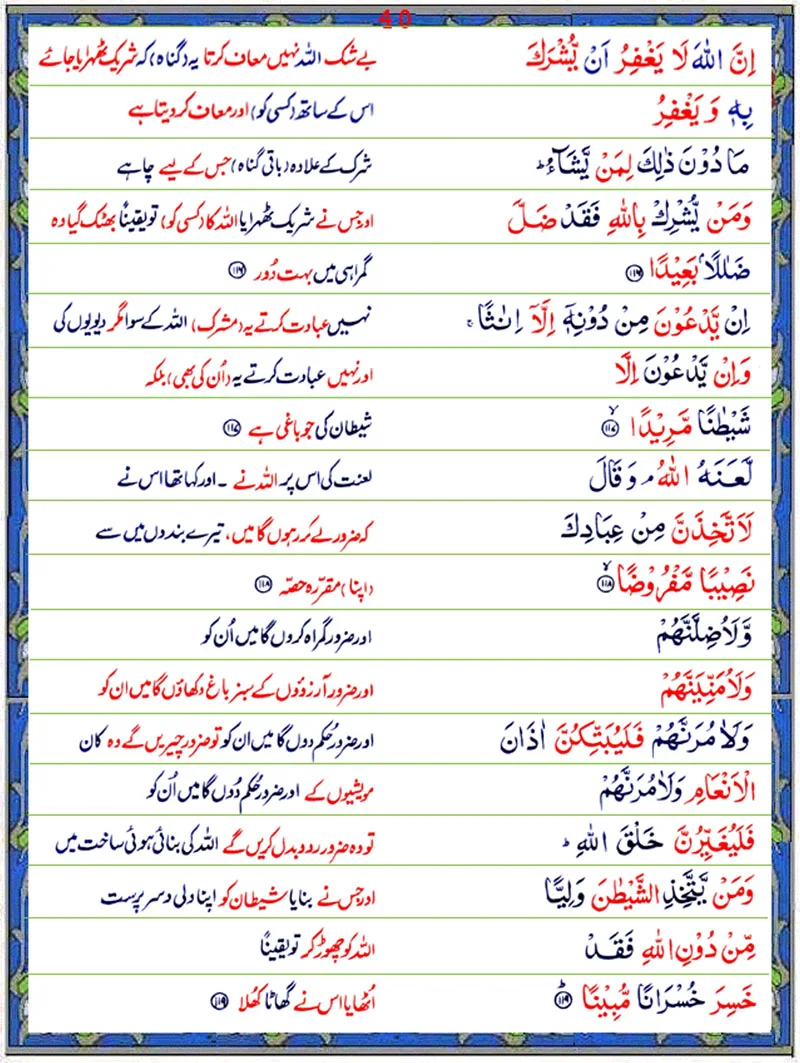 40
اِنَّ اللّٰهَ لَا يَغْفِرُ اَنْ يُّشْرَكَ بے شک اللہ نہیں معاف کرتا یہ (گناہ) کہ شریک ٹھہرایا جائے
بِهٖ وَ يَغْفِرُ اس کے ساتھ (کسی کو) اور معاف کر دیتا ہے
مَا دُوْنَ ذٰلِكَ لِمَنْ يَّشَآءُ ؕ شرک کے علاوہ (باقی گناہ) جس کے لیے چاہے
وَمَنْ يُّشْرِكْ بِاللّٰهِ فَقَدْ ضَلَّ اور جس نے شریک ٹھہرایا اللہ کا (کسی کو) تو یقیناً بھٹک گیا وہ
ضَلٰلًاۢ بَعِيْدًا ﴿۱۱۶﴾ گمراہی میں بہت دُور ﴿۱۱۶﴾
اِنْ يَّدْعُوْنَ مِنْ دُوْنِهٖۤ اِلَّاۤ اِنٰثًا ۚ نہیں عبادت کرتے یہ (مشرک) اللہ کے سوا مگر دیویوں کی
وَاِنْ يَّدْعُوْنَ اِلَّا اور نہیں عبادت کرتے یہ (اُن کی بھی) بلکہ
شَيْطٰنًا مَّرِيْدًا ﴿۱۱۷﴾ۙ شیطان کی جو باغی ہے ﴿۱۱۷﴾
لَّعَنَهُ اللّٰهُ ۘ وَقَالَ لعنت کی اس پر اللہ نے ۔ اور کہا تھا اس نے
لَاَتَّخِذَنَّ مِنْ عِبَادِكَ کہ ضرور لے کر رہوں گا میں، تیرے بندوں میں سے
نَصِيْبًا مَّفْرُوْضًا ﴿۱۱۸﴾ۙ (اپنا) مقررہ حصّہ ﴿۱۱۸﴾
وَّلَاُضِلَّنَّهُمْ اور ضرور گمراہ کروں گا میں اُن کو
وَلَاُمَنِّيَنَّهُمْ اور ضرور آرزوؤں کے سبز باغ دکھاؤں گا میں ان کو
وَلَاٰمُرَنَّهُمْ فَلَيُبَتِّكُنَّ اٰذَانَ اور ضرور حُکم دوں گا میں ان کو تو ضرور چیریں گے وہ کان
الْاَنْعَامِ وَلَاٰمُرَنَّهُمْ مویشیوں کے اور ضرور حُکم دُوں گا میں اُن کو
فَلَيُغَيِّرُنَّ خَلْقَ اللّٰهِ ؕ تو وہ ضرور ردو بدل کریں گے اللہ کی بنائی ہوئی ساخت میں
وَمَنْ يَّتَّخِذِ الشَّيْطٰنَ وَلِيًّا اور جس نے بنایا شیطان کو اپنا ولی و سرپرست
مِّنْ دُوْنِ اللّٰهِ فَقَدْ اللہ کو چھوڑ کر تو یقیناً
خَسِرَ خُسْرَانًا مُّبِيْنًا ﴿۱۱۹﴾ؕ اُٹھایا اس نے گھاٹا کھُلا ﴿۱۱۹﴾